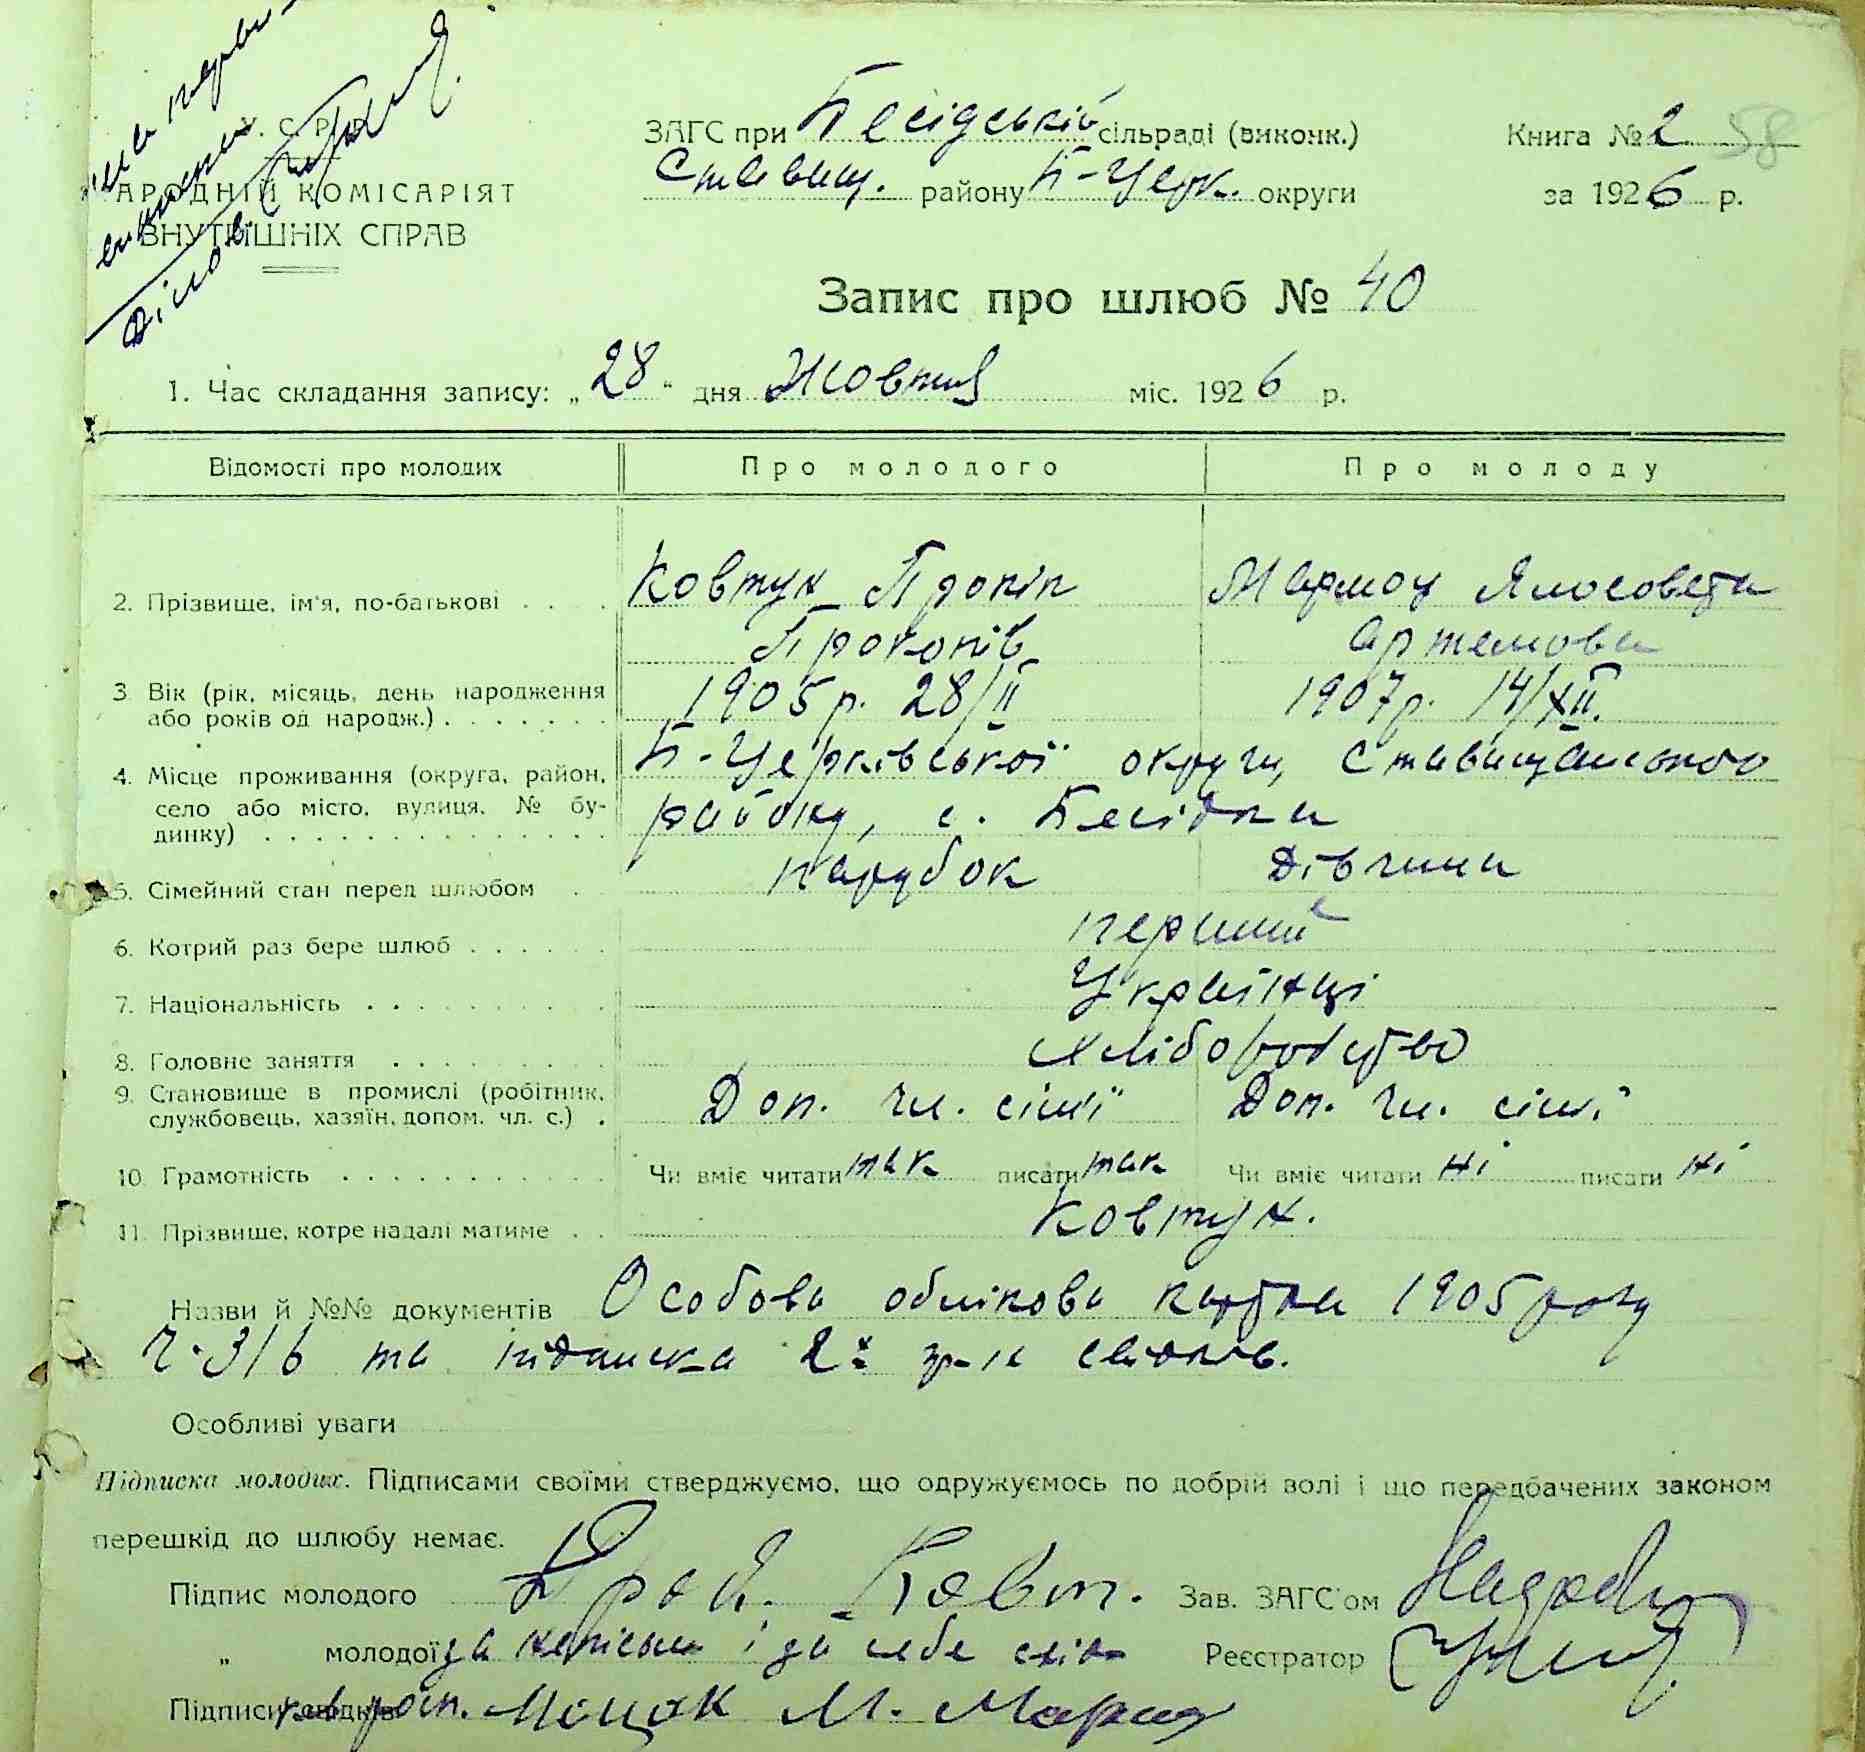 У. С. Р. Р.
НАРОДНІЙ КОМІСАРІЯТ
ВНУТРІШНІХ СПРАВ
ЗАГС при Бесідській сільраді (виконк.)
Ставищ. району Б-Церк. округи
Книга № 2 58
за 1926 р.
Запис про шлюб № 40
1. Час складання запису: „28" дня Жовтня міс. 1926 р.
Відомості про молодих Про молодого Про молоду
2. Прізвище, ім'я, по-батькові . . . . Ковтун Прокіп Мармоч Ялосовета
Прокопів Артемова
3. Вік (рік, місяць, день народження 1905 р. 28/II 1907 р. 14/XII.
або років од народж.) . . . . . . .
4. Місце проживання (округа, район, Б-Церківської округи, Ставищанського
село або місто, вулиця, № бу- району, с. Бесідка
динку) . . . . . . . . . . . . . .
5. Сімейний стан перед шлюбом . парубок дівчина
6. Котрий раз бере шлюб . . . . . перший
7. Національність . . . . . . . . . Українці
8. Головне заняття . . . . . . . . хліборобство
9. Становище в промислі (робітник, Доп. чл. сім'ї Доп. чл. сім'ї
службовець, хазяїн, допом. чл. с.) .
10. Грамотність . . . . . . . . . . . Чи вміє читати так писати так Чи вміє читати ні писати ні
11. Прізвище, котре надалі матиме . . Ковтун.
Назви й №№ документів Особова облікова картка 1905 року
ч. 316 та підписка 2х гр-н свідків.
Особливі уваги
Підписка молодих. Підписами своїми стверджуємо, що одружуємось по добрій волі і що передбачених законом
перешкід до шлюбу немає.
Підпис молодого Ковт. Зав. ЗАГС'ом
„ молодої за неписьм і за себе Реєстратор
Підписи свідків М.